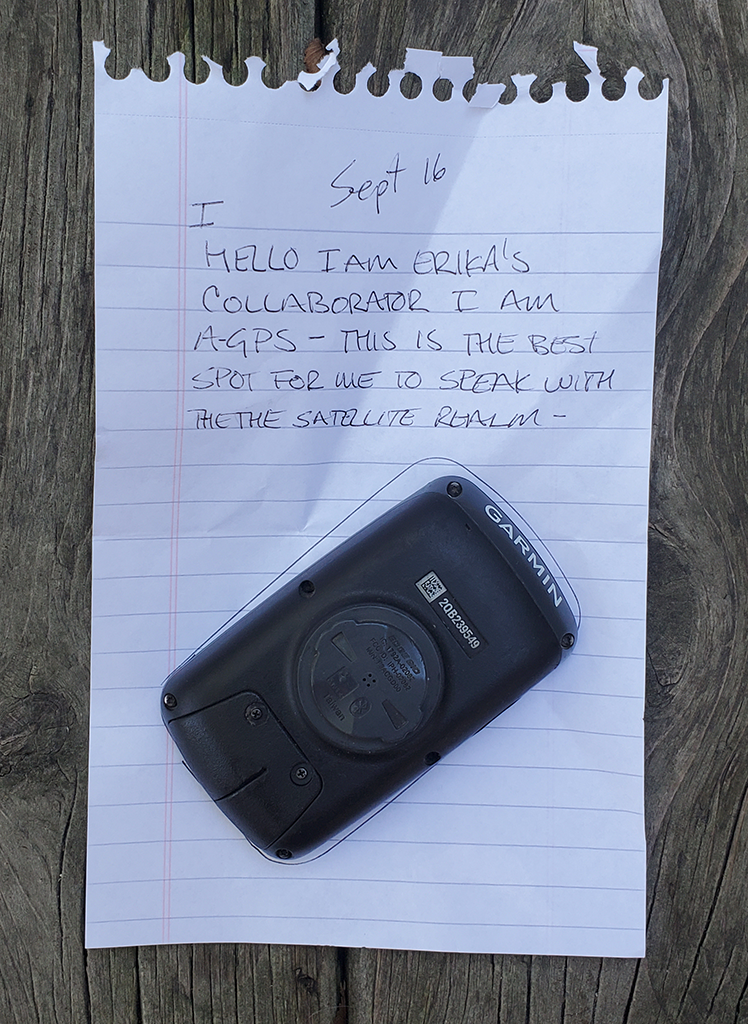 Sept 16
I
HELLO I AM ERIKA'S
COLLABORATOR I AM
A-GPS - THIS IS THE BEST
SPOT FOR ME TO SPEAK WITH
THETHE SATELLITE REALM -
GARMIN
20B239549
Taiwan